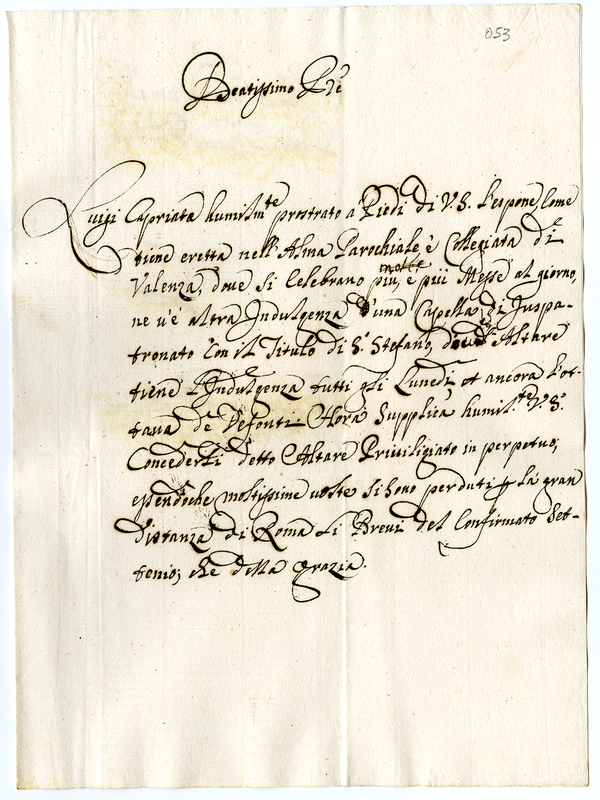 053
Beatissimo Pr̃e
Luigi Capriata humilm.te prostrato a Piedi di V.S. l'espone, Come
tiene eretta nell'Alma Parochiale è Collegiata di
Valenza, doue si celebrano molte più, è più Messe al giorno,
ne u'è altra Indulgenza d'una Capella di Juspa-
tronato con il Titulo di S. Stefano, Altare
tiene l'Indulgenza tutti gli Lunedi, et ancora l'ot-
taua de Defonti. Hora Supplica humil.te V.S.
Concederli detto Altare Priuiligiato in perpetuo,
essendoche moltissime uolte si sono perduti p la gran
distanza di Roma li Breui del Confirmato Set-
tenio; che della grazia.